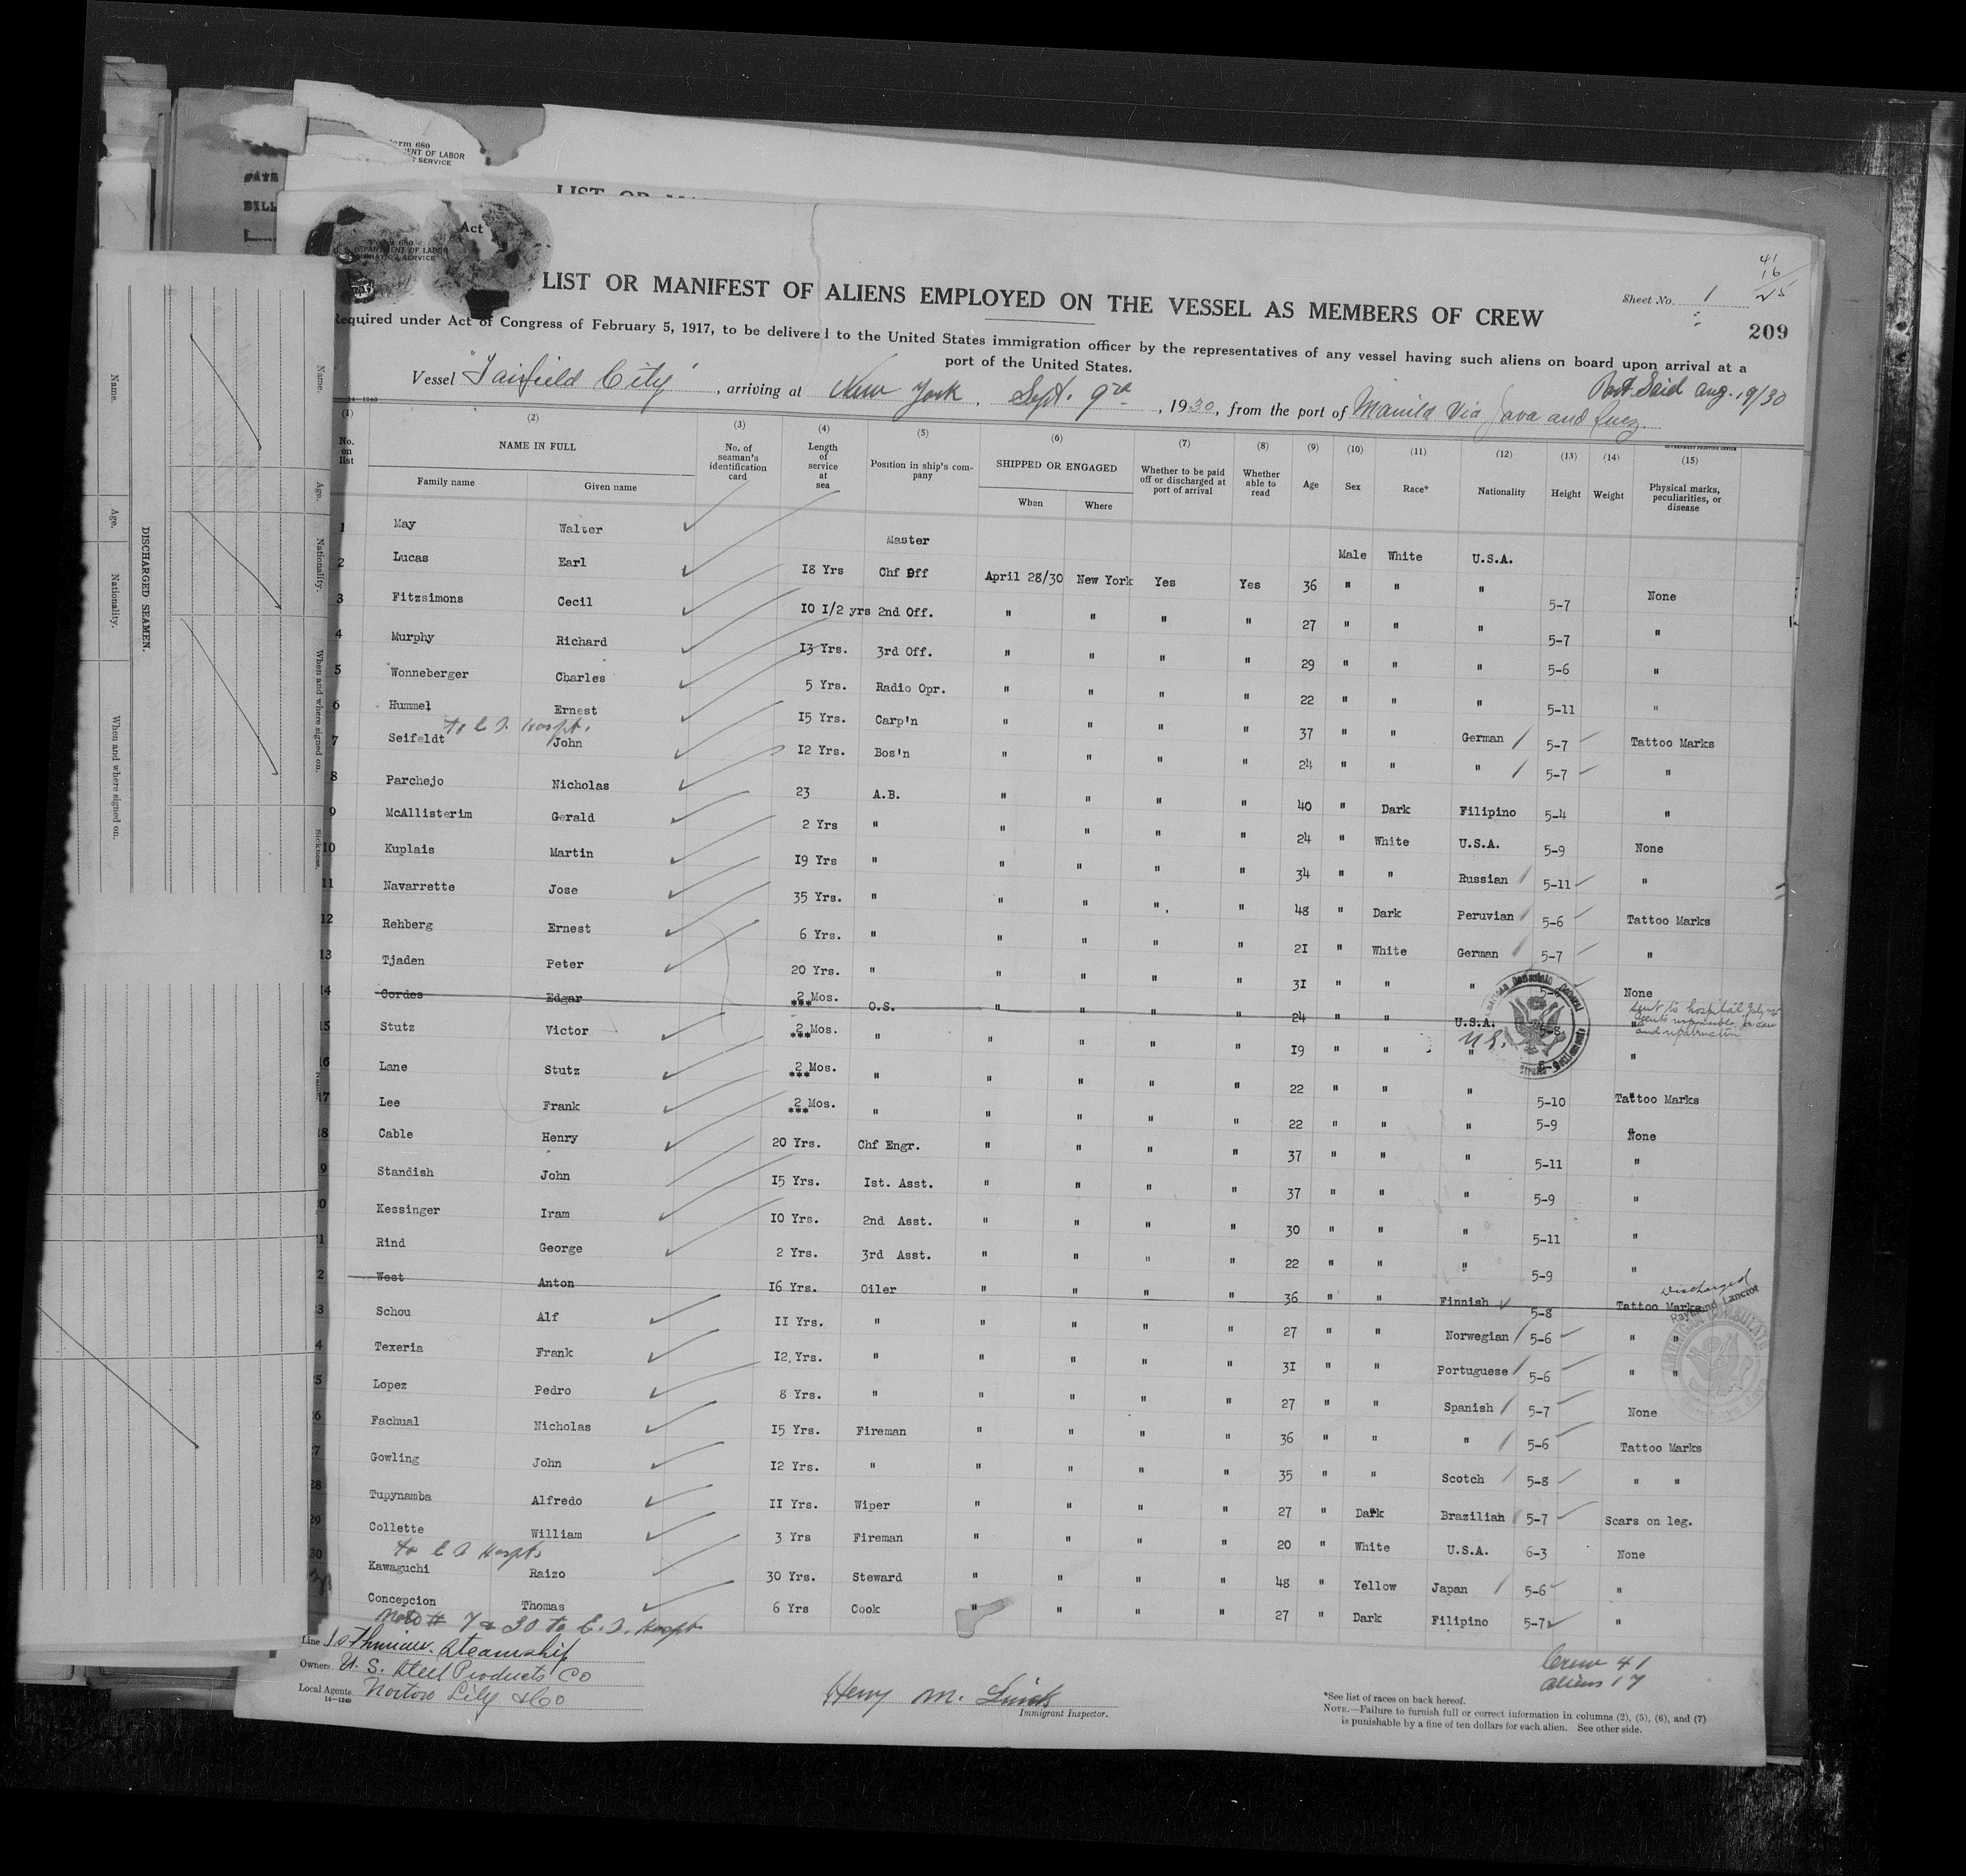 Form 680
DEPARTMENT OF LABOR
SERVICE
DATE
BILL
Act
DEPARTMENT OF LABOR
SERVICE
41
16
25
LIST OR MANIFEST OF ALIENS EMPLOYED ON THE VESSEL AS MEMBERS OF CREW
Sheet No. 1
209
Required under Act of Congress of February 5, 1917, to be delivered to the United States immigration officer by the representatives of any vessel having such aliens on board upon arrival at a
port of the United States.
Port Said Aug. 19/30
Vessel "Fairfield City", arriving at New York, Sept. 9th, 1930, from the port of Manila Via Java and Suez.
14—1240
(1) (2) (3) (4) (5) (6) (7) (8) (9) (10) (11) (12) (13) (14) (15)
No. on list NAME IN FULL Family name Given name No. of seaman's identification card Length of service at sea Position in ship's company SHIPPED OR ENGAGED When Where Whether to be paid off or discharged at port of arrival Whether able to read Age Sex Race* Nationality Height Weight Physical marks, peculiarities, or disease
1 May Walter Master Male White U.S.A.
2 Lucas Earl 18 Yrs Chf Off April 28/30 New York Yes Yes 36 " " " 5-7 None
3 Fitzsimons Cecil 10 1/2 yrs 2nd Off. " " " " 27 " " " 5-7 "
4 Murphy Richard 13 Yrs. 3rd Off. " " " " 29 " " " 5-6 "
5 Wonneberger Charles 5 Yrs. Radio Opr. " " " " 22 " " " 5-11 "
6 Hummel Ernest 15 Yrs. Carp'n " " " " 37 " " German 5-7 Tattoo Marks
to E I Hospt.
7 Seifeldt John 12 Yrs. Bos'n " " " " 24 " " " 5-7 "
8 Parchejo Nicholas 23 A.B. " " " " 40 " Dark Filipino 5-4 "
9 McAllisterim Gerald 2 Yrs " " " " " 24 " White U.S.A. 5-9 None
10 Kuplais Martin 19 Yrs " " " " " 34 " " Russian 5-11 "
11 Navarrette Jose 35 Yrs. " " " " " 48 " Dark Peruvian 5-6 Tattoo Marks
12 Rehberg Ernest 6 Yrs. " " " " " 21 " White German 5-7 "
13 Tjaden Peter 20 Yrs. " " " " " 31 " " " None
14 Cordes Edgar 2 Mos. *** O.S. " " " " 24 " " U.S.A. 5-8 " Sent to hospital July
and repatriation
15 Stutz Victor 2 Mos. *** " " " " " 19 " " " "
16 Lane Stutz 2 Mos. *** " " " " " 22 " " " 5-10 Tattoo Marks
17 Lee Frank 2 Mos. *** " " " " " 22 " " " 5-9 None
18 Cable Henry 20 Yrs. Chf Engr. " " " " 37 " " " 5-11 "
19 Standish John 15 Yrs. 1st. Asst. " " " " 37 " " " 5-9 "
20 Kessinger Iram 10 Yrs. 2nd Asst. " " " " 30 " " " 5-11 "
21 Rind George 2 Yrs. 3rd Asst. " " " " 22 " " " 5-9 "
Discharged
22 West Anton 16 Yrs. Oiler " " " " 36 " " Finnish 5-8 Tattoo Marks
Raymond Lanctot
23 Schou Alf 11 Yrs. " " " " " 27 " " Norwegian 5-6 " "
24 Texeria Frank 12 Yrs. " " " " " 31 " " Portuguese 5-6 " "
25 Lopez Pedro 8 Yrs. " " " " " 27 " " Spanish 5-7 None
26 Fachual Nicholas 15 Yrs. Fireman " " " " 36 " " " 5-6 Tattoo Marks
27 Gowling John 12 Yrs. " " " " " 35 " " Scotch 5-8 " "
28 Tupynamba Alfredo 11 Yrs. Wiper " " " " 27 " Dark Brazilian 5-7 Scars on leg.
29 Collette William 3 Yrs Fireman " " " " 20 " White U.S.A. 6-3 None
to E I Hospt.
30 Kawaguchi Raizo 30 Yrs. Steward " " " " 48 " Yellow Japan 5-6 "
Concepcion Thomas 6 Yrs Cook " " " " 27 " Dark Filipino 5-7 "
Nos # 7 & 30 to E. I. Hospt
Line Isthmian Steamship
Owners U. S. Steel Products Co
Local Agents Norton Lilly & Co
14—1240
Henry M.
Immigrant Inspector.
Crew 41
Aliens 17
*See list of races on back hereof.
NOTE.—Failure to furnish full or correct information in columns (2), (5), (6), and (7)
is punishable by a fine of ten dollars for each alien. See other side.
DISCHARGED SEAMEN.
Name. Age. Nationality. When and where signed on.
Name. Age. Nationality. When and where signed on. Sickness.